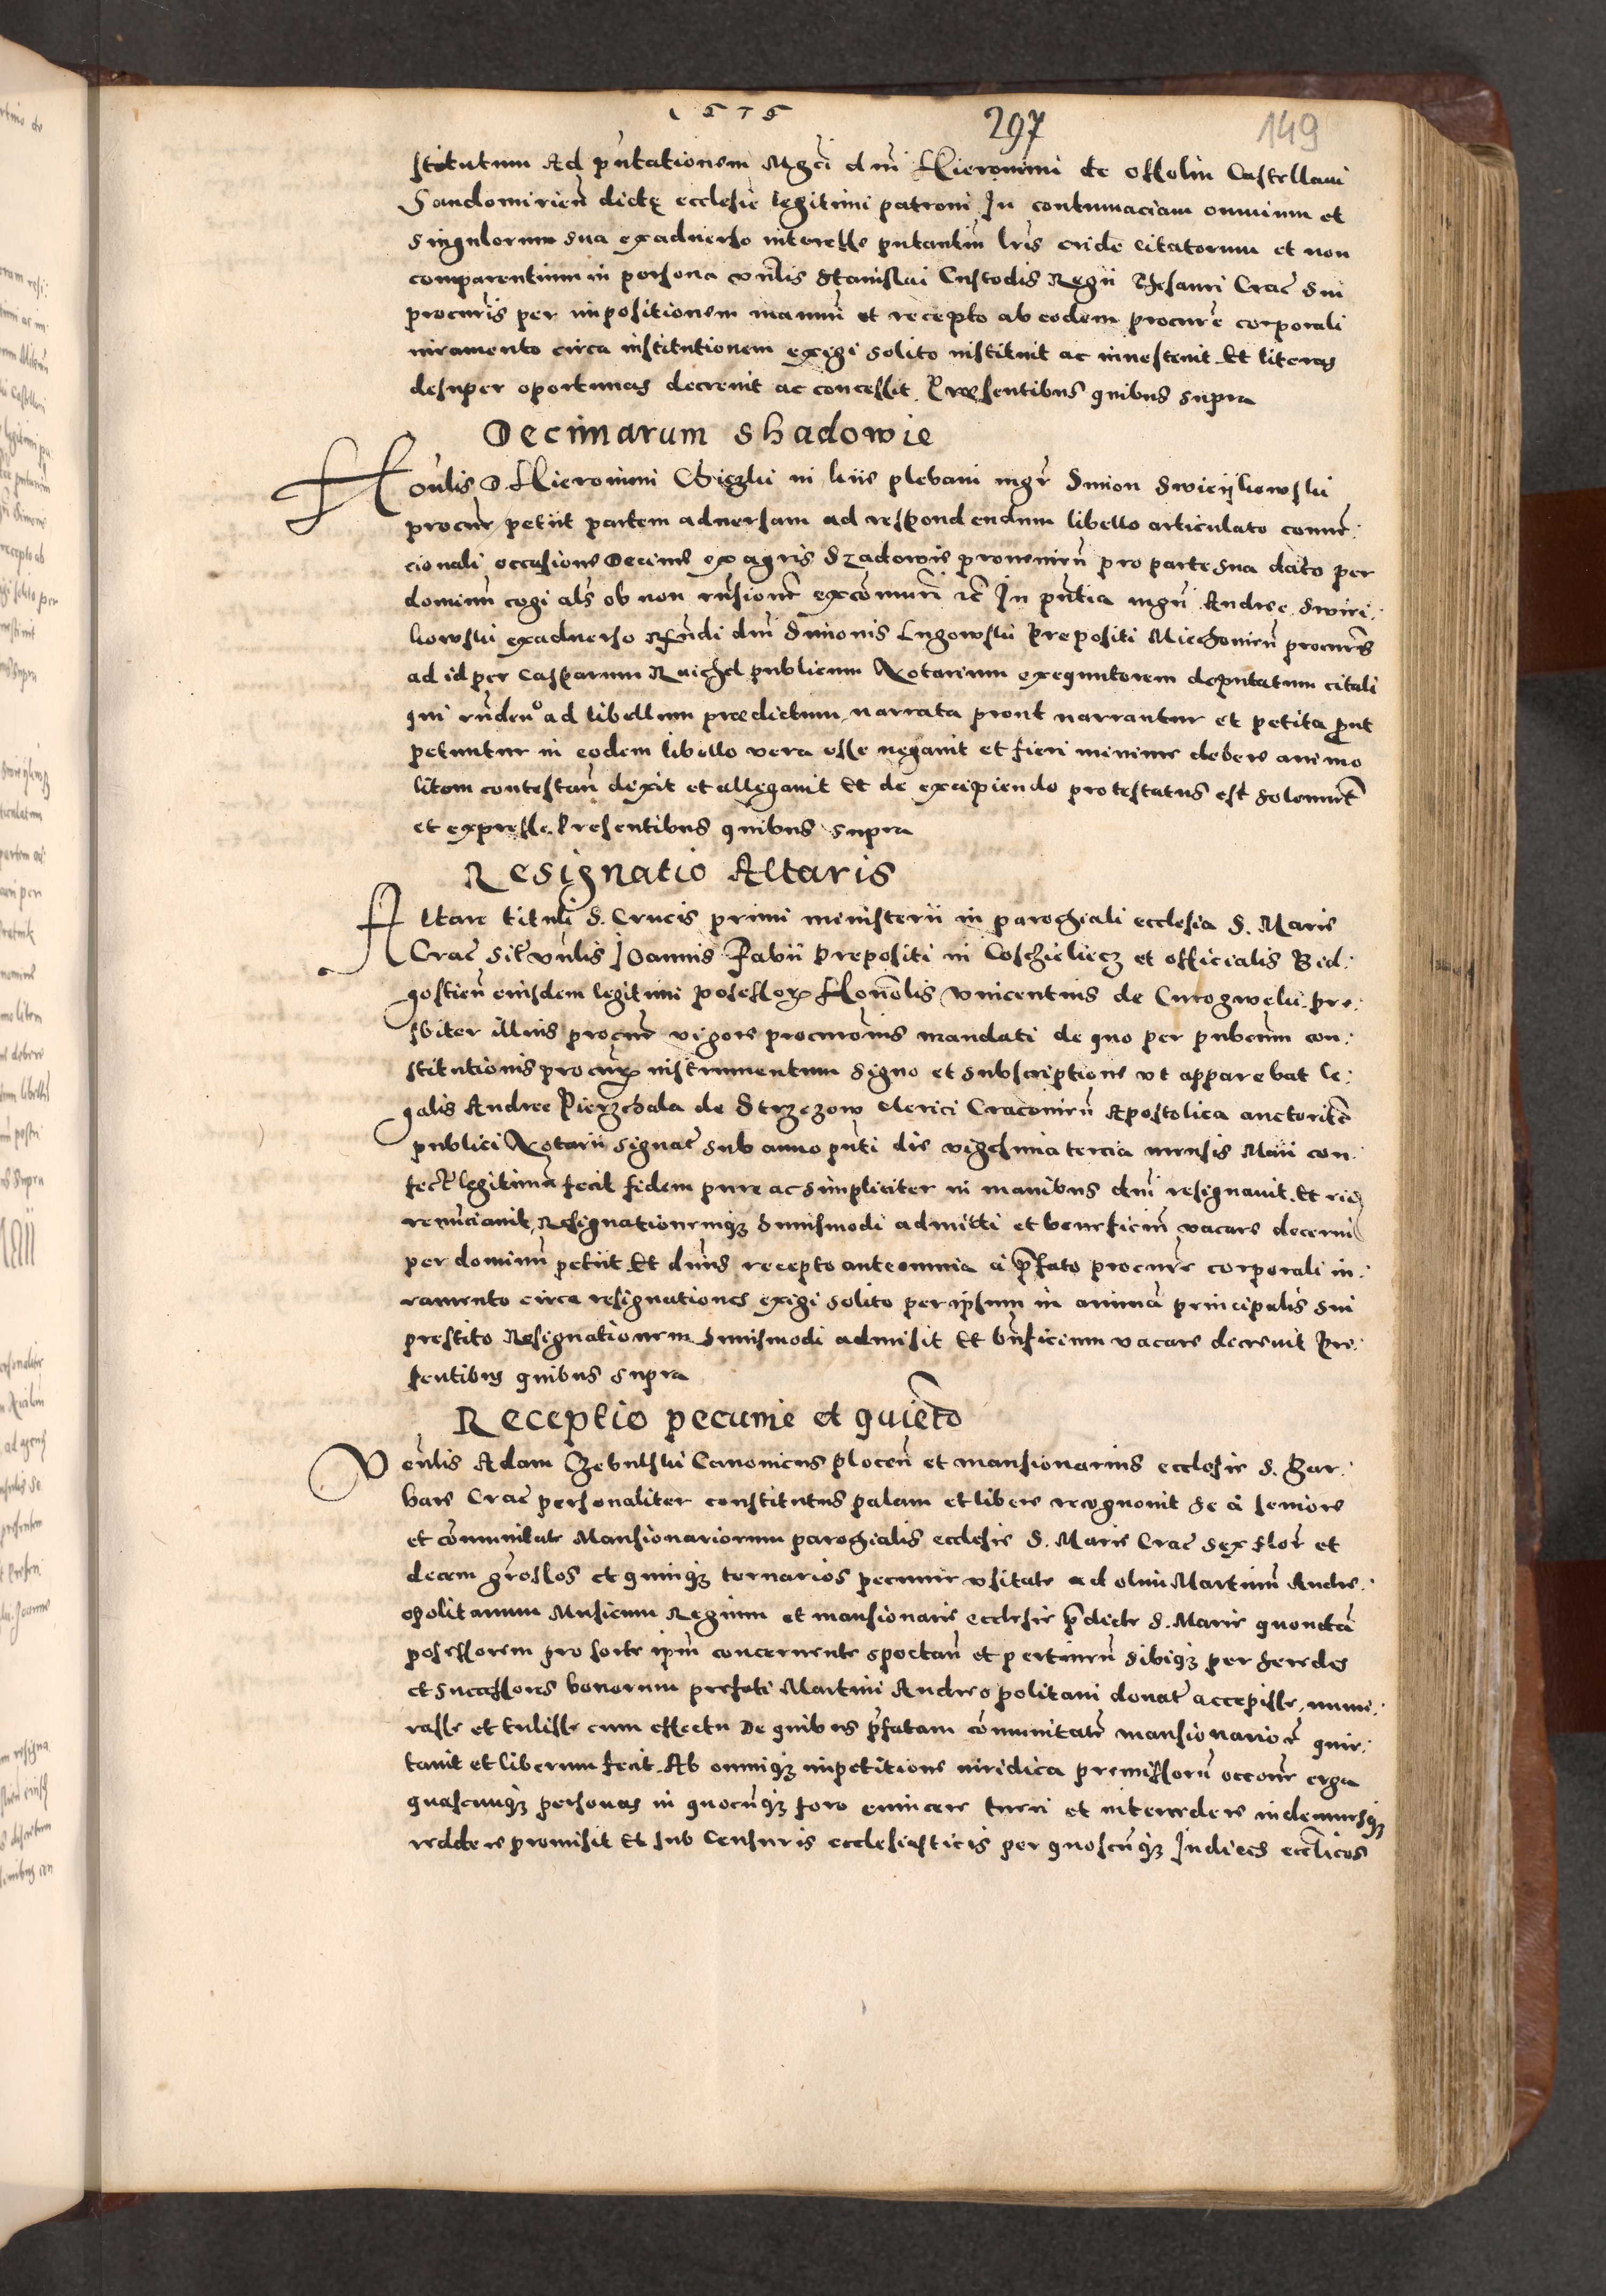 1575
297
149
stitutum Ad pñtationem Mgci dni Hieronimi de Ossolin Castellani
Sandomirieñ dictę ecclesie legitimi patroni In contumaciam omnium et
singulorum sua exadverso interesse putantiũ lris eiide citatorum et non
comparentium in persona vñlis Stanislai Custodis Regii Thesauri Crac̃ sui
procuris per impositionem manuũ et recepto ab eodem procure corporali
iuramento circa institutionem exigi solito instituit ac investivit Et literas
desuper oportunas decrevit ac concessit. Præsentibus quibus supra
Decimarum Shadowie
Honlis D. Hieronimi in plebani mgr Simon Swieijkowski
procur petiit partem adversam ad respondendum libello articulato conve:
cionali occasione Decime ex agris Szadowie provenieñ pro parte sua dato per
dominũ cogi als ob non rñsione excõmuri rc̃ In pñtia mgri Andree Swiei:
kowski exadverso Rñdi dni Simonis Lugowski Prepositi Miechovieñ procuris
ad id per Casparum Ruichel publicum Notarium exequutorem deputatum citati
qui rñdeñ ad libellum prædictum, narrata prout narrantur et petita prout
petuntur in eodem libello vera esse negavit et fieri minime debere animo
litem contestañ dixit et allegavit Et de excipiendo protestatus est solemnit̃
et expresse. Presentibus quibus supra
Resignatio Altaris
Altare tituli S. Crucis primi ministerii in parochiali ecclesia S. Marie
Crac̃ Sit̃ vñlis Joannis Fabii Prepositi in Coschieliecz et officialis Bid:
gostieñ eiusdem legitimi possessor Honolis Vincentius de pre:
sbiter illius procur vigore procuronis mandati de quo per publicum con:
stitutionis procur instrumentum signo et subscriptione vt apparebat le:
galis Andree Pierzchala de Strzezow Clerici Cracovieñ Apostolica auctorite
publici Notarii signat̃ sub anno pñti die vigesima tercia mensis Maii con:
fect̃ legitimã fecit fidem pure ac simpliciter in manibus dni resignavit Et ei
renũciavit, Resignationemq; huiusmodi admitti et beneficiũ vacare decerni
per dominũ petiit Et dnus recepto ante omnia a p̃fato procure corporali iu:
ramento circa resignationes exigi solito per ipsum in animã principalis sui
prestito Resignationem huiusmodi admisit Et bñficium vacare decrevit Pre:
sentibus quibus supra
Receptio pecunie et quietatio
Veñlis Adam Zebulski Canonicus ploceñ et mansionarius ecclesie S. Bar:
bare Crac̃ personaliter constitutus palam et libere recognovit se a seniore
et cõmunitate Mansionariorum parochialis ecclesie S. Marie Crac̃ sex flor̃ et
decem grossos et quinq; ternarios pecunie usitate ad olim Martinũ Andre:
opolitanum Musicum Regium et mansionarie ecclesie p̃dicte S. Marie quondã
possessorem pro sorte ipm concernente spectañ et pertineñ sibiq; per heredes
et successores bonorum prefati Martini Andreopolitani donat̃ accepisse, nume:
rasse et tulisse cum effectu De quibus p̃fatam cõmunitatẽ mansionarior̃ quie:
tavit et liberum fecit. Ab omniq; impetitione iuridica premissorũ occone erga
quascunq; personas in quocũq; foro evincere tueri et intercedere indemnesq;
reddere promisit Et sub Censuris ecclesiasticis per quoscũq; Iudices eccl̃icos